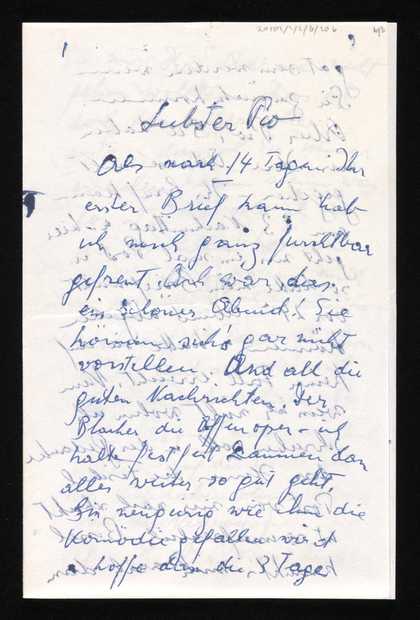 Liebster Pio
Als nach 14 Tagen Ihr
erster Brief kam hab
ich mich ganz furchtbar
gefreut. Ach war das
ein schöner Abend! Sie
können sich's gar nicht
vorstellen. Und all die
guten Nachrichten. Der
Blacher, die Affenoper - ich
halte fest fest Daumen dass
alles weiter so gut geht,
Bin neugierig wie Ihnen die
Komödie gefallen wird
hoffe dass die 8 Tage